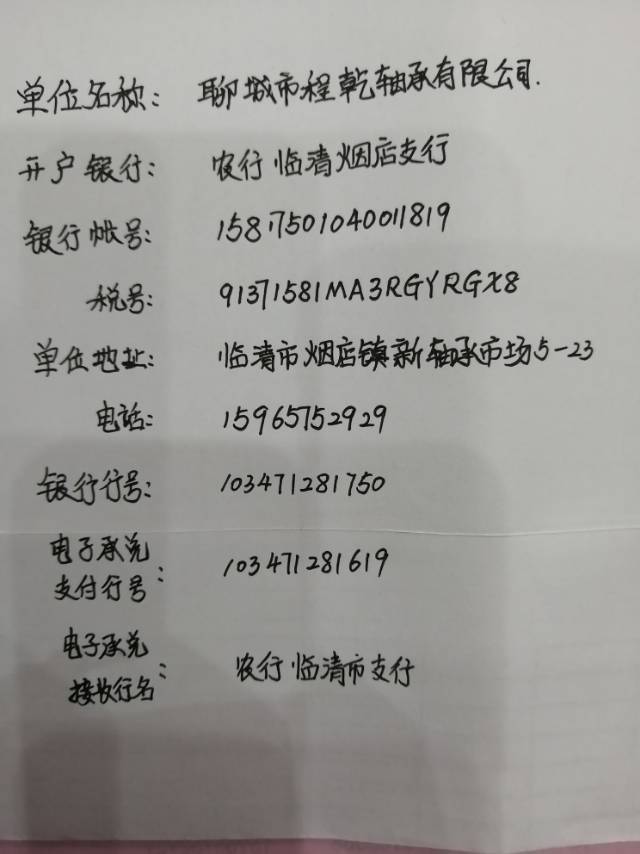 单位名称: 聊城市程乾轴承有限公司.
开户银行: 农行临清烟店支行
银行帐号: 15817501040011819
税号: 91371581MA3RGYRGX8
单位地址: 临清市烟店镇新轴承市场5-23
电话: 15965752929
银行行号: 103471281750
电子承兑
支付行号: 103471281619
电子承兑
接收行名: 农行临清市支行